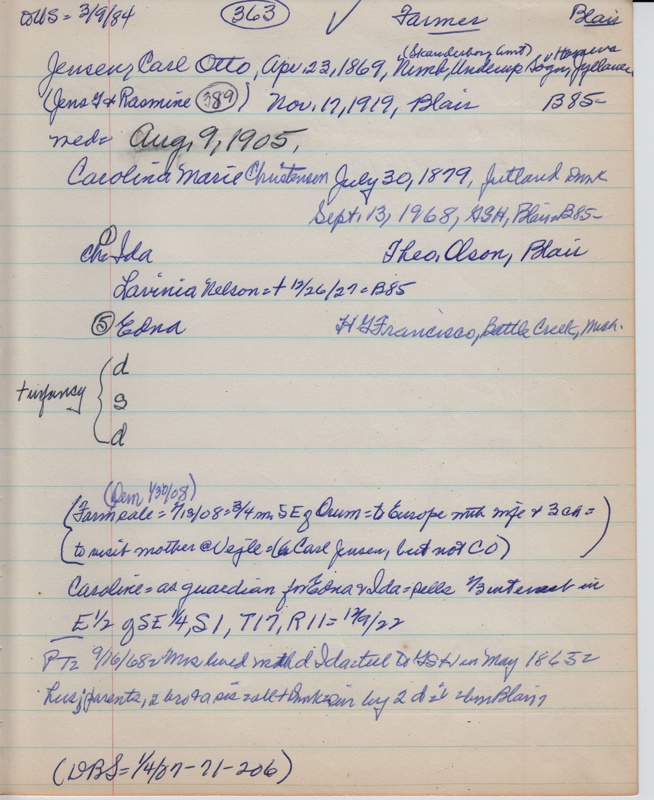 DWS = 3/9/84 363 ✓ Farmer Blair
(Skanderborg Amt)
Jensen, Carl Otto, Apr. 23, 1869, Nimb, Underup Sogn, Jylland
(Jens & Rasmine 389) Nov. 17, 1919, Blair B85=
med= Aug, 9, 1905,
Carolina Marie Christensen July 30, 1879, Jutland Dmk
Sept. 13, 1968, Blair=B85=
ch= Ida Theo. Olson, Blair
Lavinia Nelson=+ 12/26/27=B85
⑤ Edna Francisco, Battle Creek, Mich.
+infancy { d
s
d
(Dem 1/30/08)
(Farm sale = 3/4 m. SE of Orum = to Europe with wife + 3 ch =
to visit mother @ Vejle = Carl Jensen, but not CO)
Caroline = as guardian for Edna & Ida = sells 1/3 interest in
E 1/2 of SE 1/4, S1, T17, R11 = 12/9/22
PT= 9/16/68= Mrs lived with d Ida til in May 1865=
parents, 2 bro + a sis = all + Dmk = sur by 2 d = Blair,
(DBS = 1/4/27-71-206)